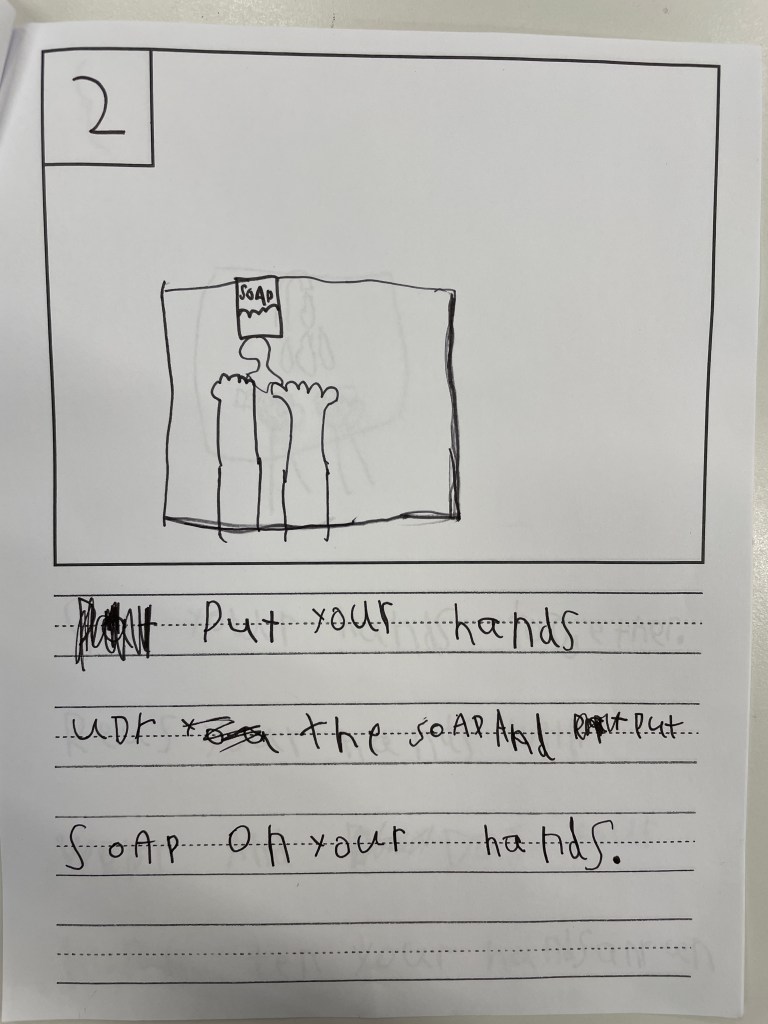 2
SOAP
Put your hands
UDr the SoAP And Put
SoAP On your hands.